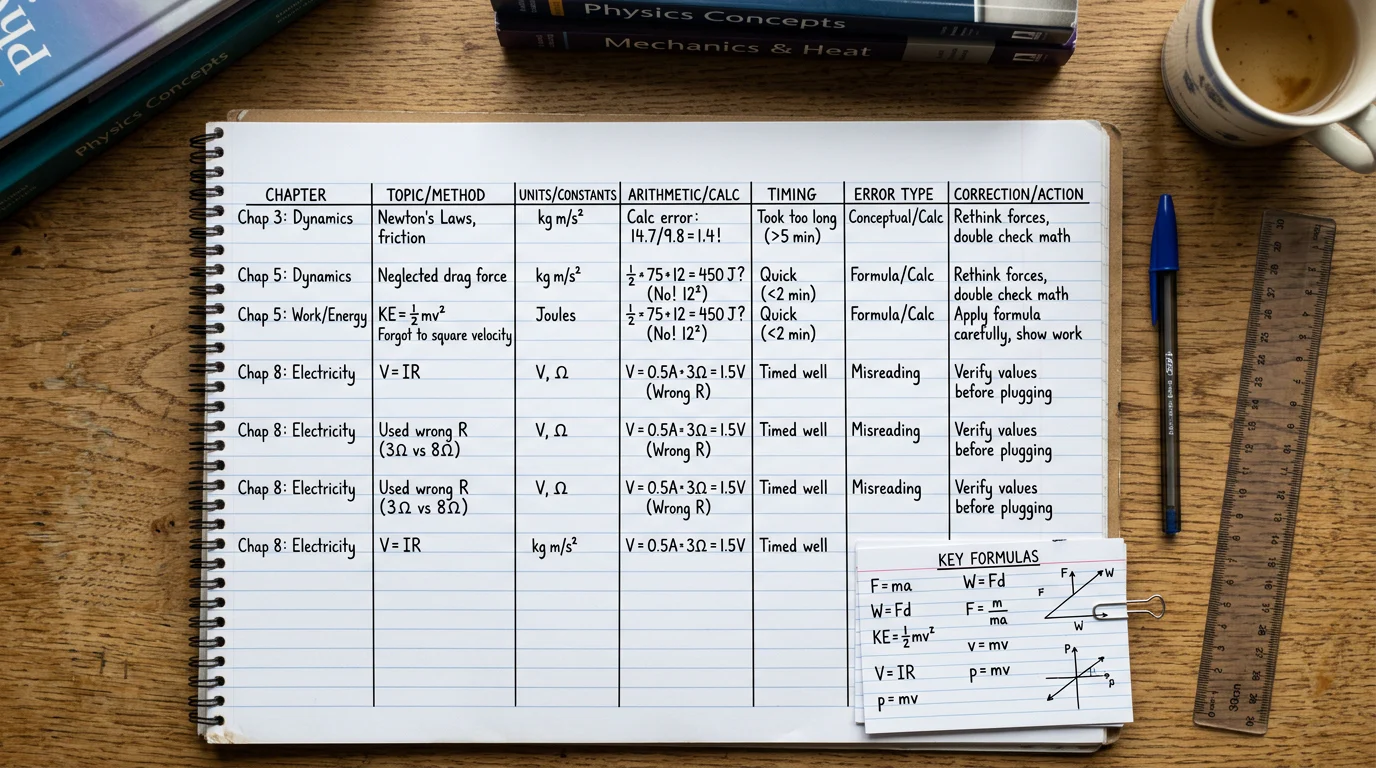 Physics Concepts
Mechanics & Heat
Physics Concepts
CHAPTER TOPIC/METHOD UNITS/CONSTANTS ARITHMETIC/CALC TIMING ERROR TYPE CORRECTION/ACTION
Chap 3: Dynamics Newton's Laws, kg m/s² Calc error: Took too long Conceptual/Calc Rethink forces,
friction 14.7/9.8=1.4! (>5 min) double check math
Chap 5: Dynamics Neglected drag force kg m/s² ½*75*12=450 J? Quick Formula/Calc Rethink forces,
(No! 12²) (<2 min) double check math
Chap 5: Work/Energy KE=½mv² Joules ½*75*12=450 J? Quick Formula/Calc Apply formula
Forgot to square velocity (No! 12²) (<2 min) carefully, show work
Chap 8: Electricity V=IR V, Ω V=0.5A*3Ω=1.5V Timed well Misreading Verify values
(Wrong R) before plugging
Chap 8: Electricity Used wrong R V, Ω V=0.5A*3Ω=1.5V Timed well Misreading Verify values
(3Ω vs 8Ω) (Wrong R) before plugging
Chap 8: Electricity Used wrong R V, Ω V=0.5A*3Ω=1.5V Timed well Misreading Verify values
(3Ω vs 8Ω) (Wrong R) before plugging
Chap 8: Electricity V=IR kg m/s² V=0.5A*3Ω=1.5V Timed well
KEY FORMULAS
F=ma W=Fd
W=Fd F=m/ma
KE=½mv² v=mv
V=IR p=mv
p=mv
F W
F
W
P
p
30cm